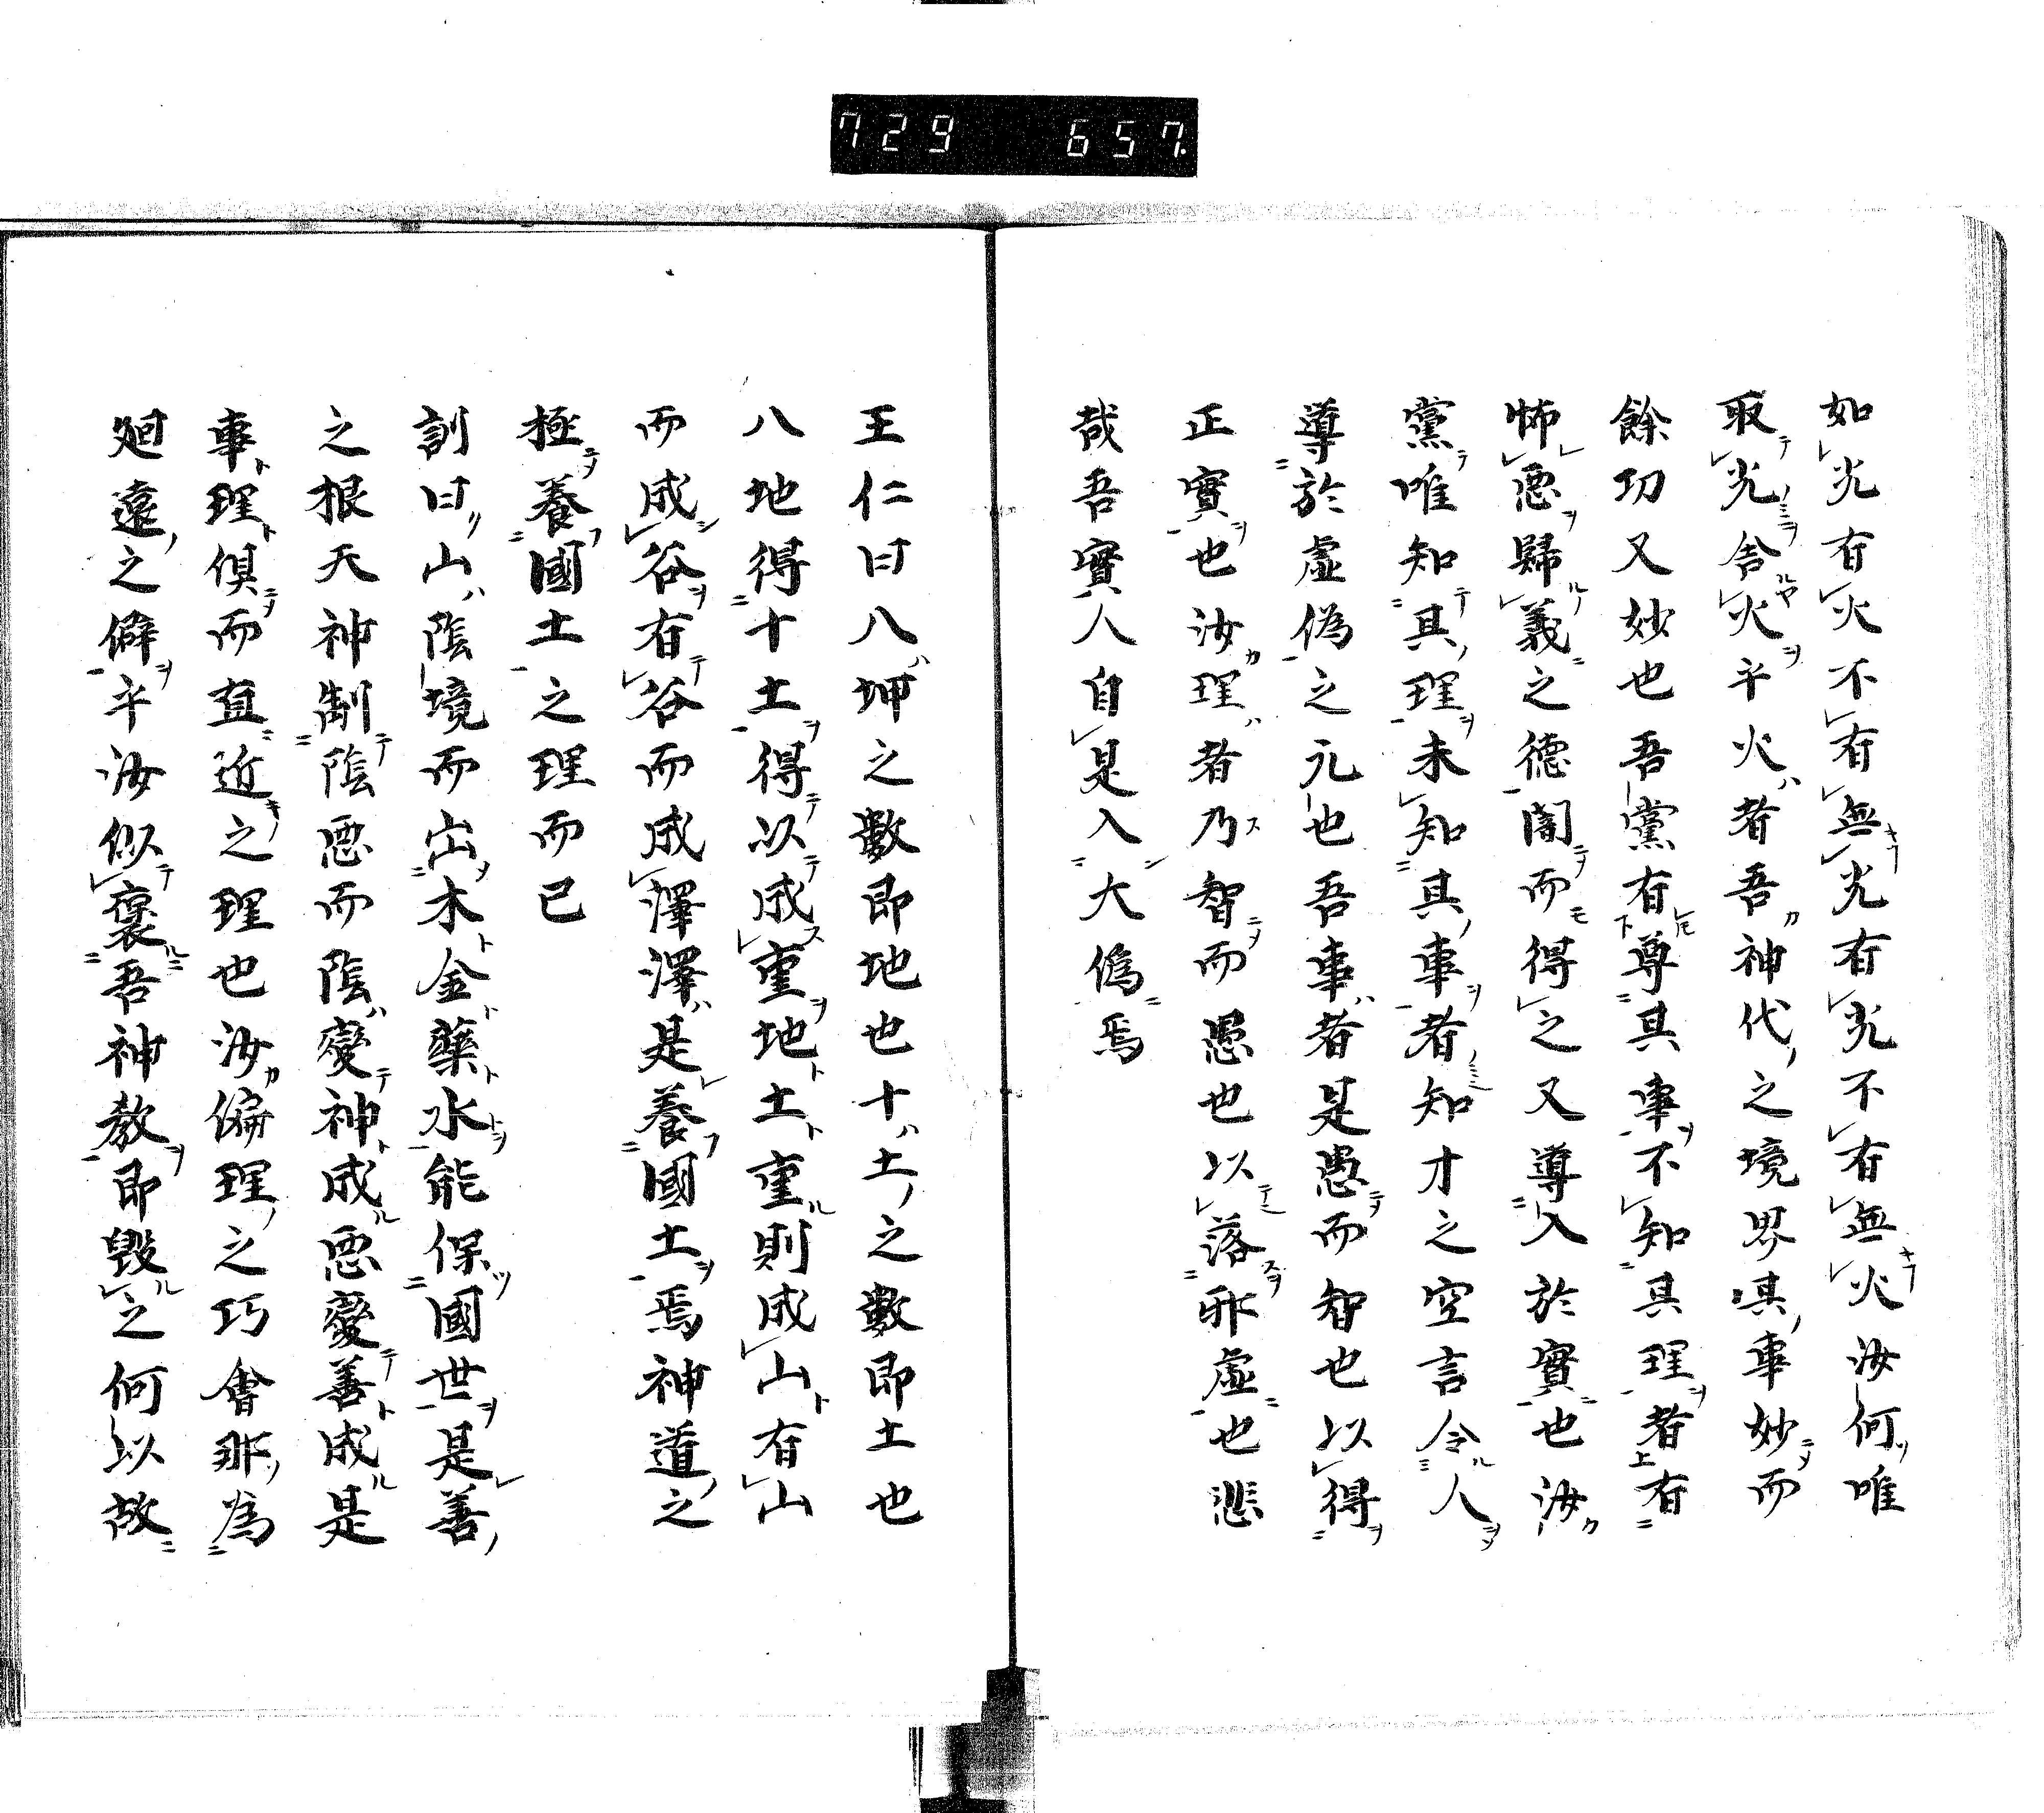 729 657
如光有火不有無光有光不有無火汝何唯
取光舎火乎火者吾神代之境界其事妙而
餘功又妙也吾黨有尊其事不知其理者有
怖悪歸義之徳闇而得之又導入於實也汝
黨唯知其理未知其事者知才之空言令人
導於虚偽之元也吾事者是愚而智也以得
正實也汝理者乃智而愚也以落邪虚也悲
哉吾實人自是入大偽焉
王仁曰八坤之數即地也十土之數即土也
八地得十土得以成重地土重則成山有山
而成谷有谷而成澤澤是養國土焉神道之
極養國土之理而已
訓曰山陰境而出木金藥水能保國世是善
之根天神制陰悪而陰變神成悪變善成是
事理倶而直近之理也汝偏理之巧會邪為
廻遠之僻乎汝似褒吾神教即毀之何以故